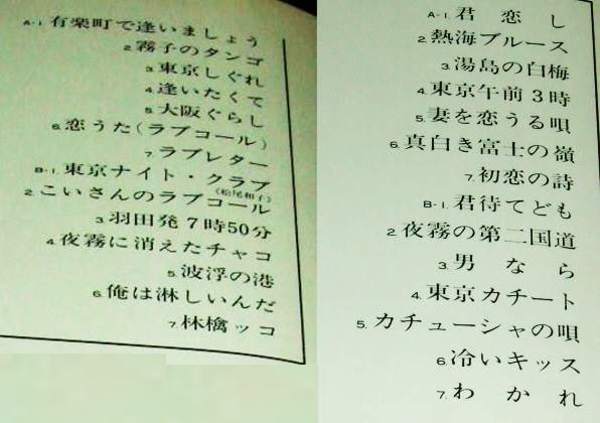 A-1. 有楽町で逢いましょう
2. 霧子のタンゴ
3. 東京しぐれ
4. 逢いたくて
5. 大阪ぐらし
6. 恋うた(ラブコール)
7. ラブレター
B-1. 東京ナイト・クラブ
(松尾和子)
2. こいさんのラブコール
3. 羽田発7時50分
4. 夜霧に消えたチャコ
5. 波浮の港
6. 俺は淋しいんだ
7. 林檎ッコ
A-1. 君恋し
2. 熱海ブルース
3. 湯島の白梅
4. 東京午前3時
5. 妻を恋うる唄
6. 真白き富士の嶺
7. 初恋の詩
B-1. 君待てども
2. 夜霧の第二国道
3. 男なら
4. 東京カチート
5. カチューシャの唄
6. 冷いキッス
7. わかれ